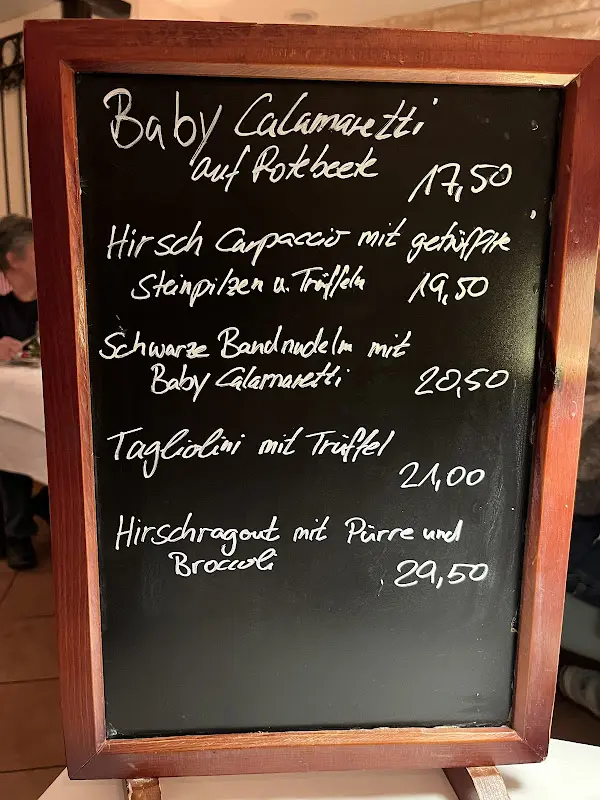 Baby Calamaretti
auf Rotebeete 17,50
Hirsch Carpaccio mit getrüffte
Steinpilzen u. Trüffeln 19,50
Schwarze Bandnudeln mit
Baby Calamaretti 20,50
Tagliolini mit Trüffel
21,00
Hirschragout mit Pürre und
Broccoli 29,50